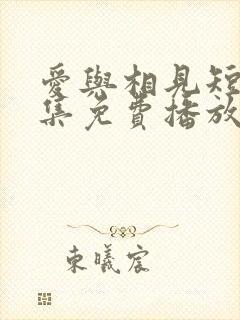 愛與相見短
集免費播放
東曦宸